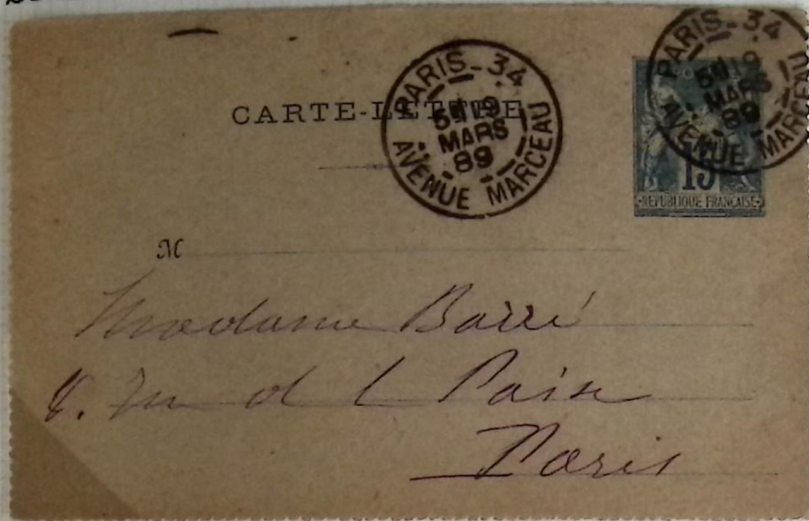 CARTE-LETTRE
PARIS - 34
5E 19
MARS
89
AVENUE MARCEAU
PARIS - 34
5E 19
MARS
89
AVENUE MARCEAU
15
REPUBLIQUE FRANÇAISE
M
Madame Barré
8. Rue de la Paix
Paris